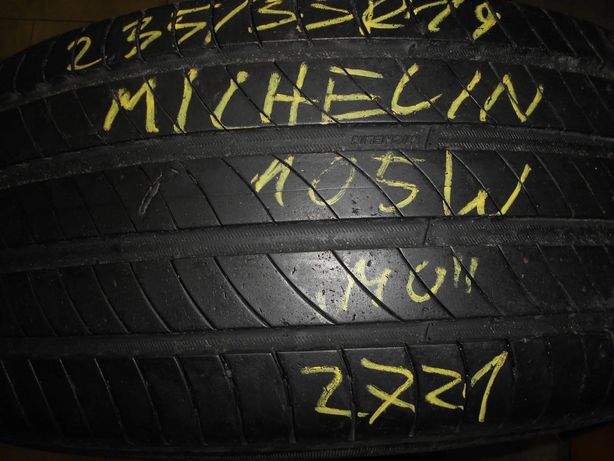 235/55R19
MICHELIN
105W
„MO"
2721